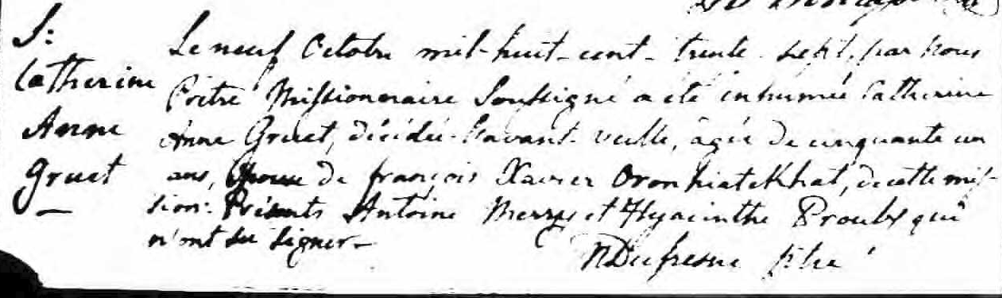 S:
Catherine
Anne
Gruet
Le neuf Octobre mil-huit-cent-trente-sept, par nous
Prêtre Missionnaire Soussigné a été inhumée Catherine
Anne Gruet, décédée l'avant-veille, âgée de cinquante un
ans, Epouse de françois Xavier Oronhiatekhat, de cette mis-
sion: Présents Antoine Merry et Hyacinthe Proulx qui
n'ont su signer-
N Dufresne ptre